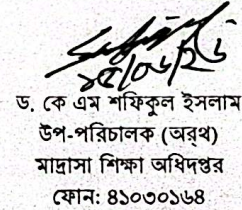 ১৫/০৬/২৬
ড. কে এম শফিকুল ইসলাম
উপ-পরিচালক (অর্থ)
মাদ্রাসা শিক্ষা অধিদপ্তর
ফোন: ৪১০৩০১৬৪